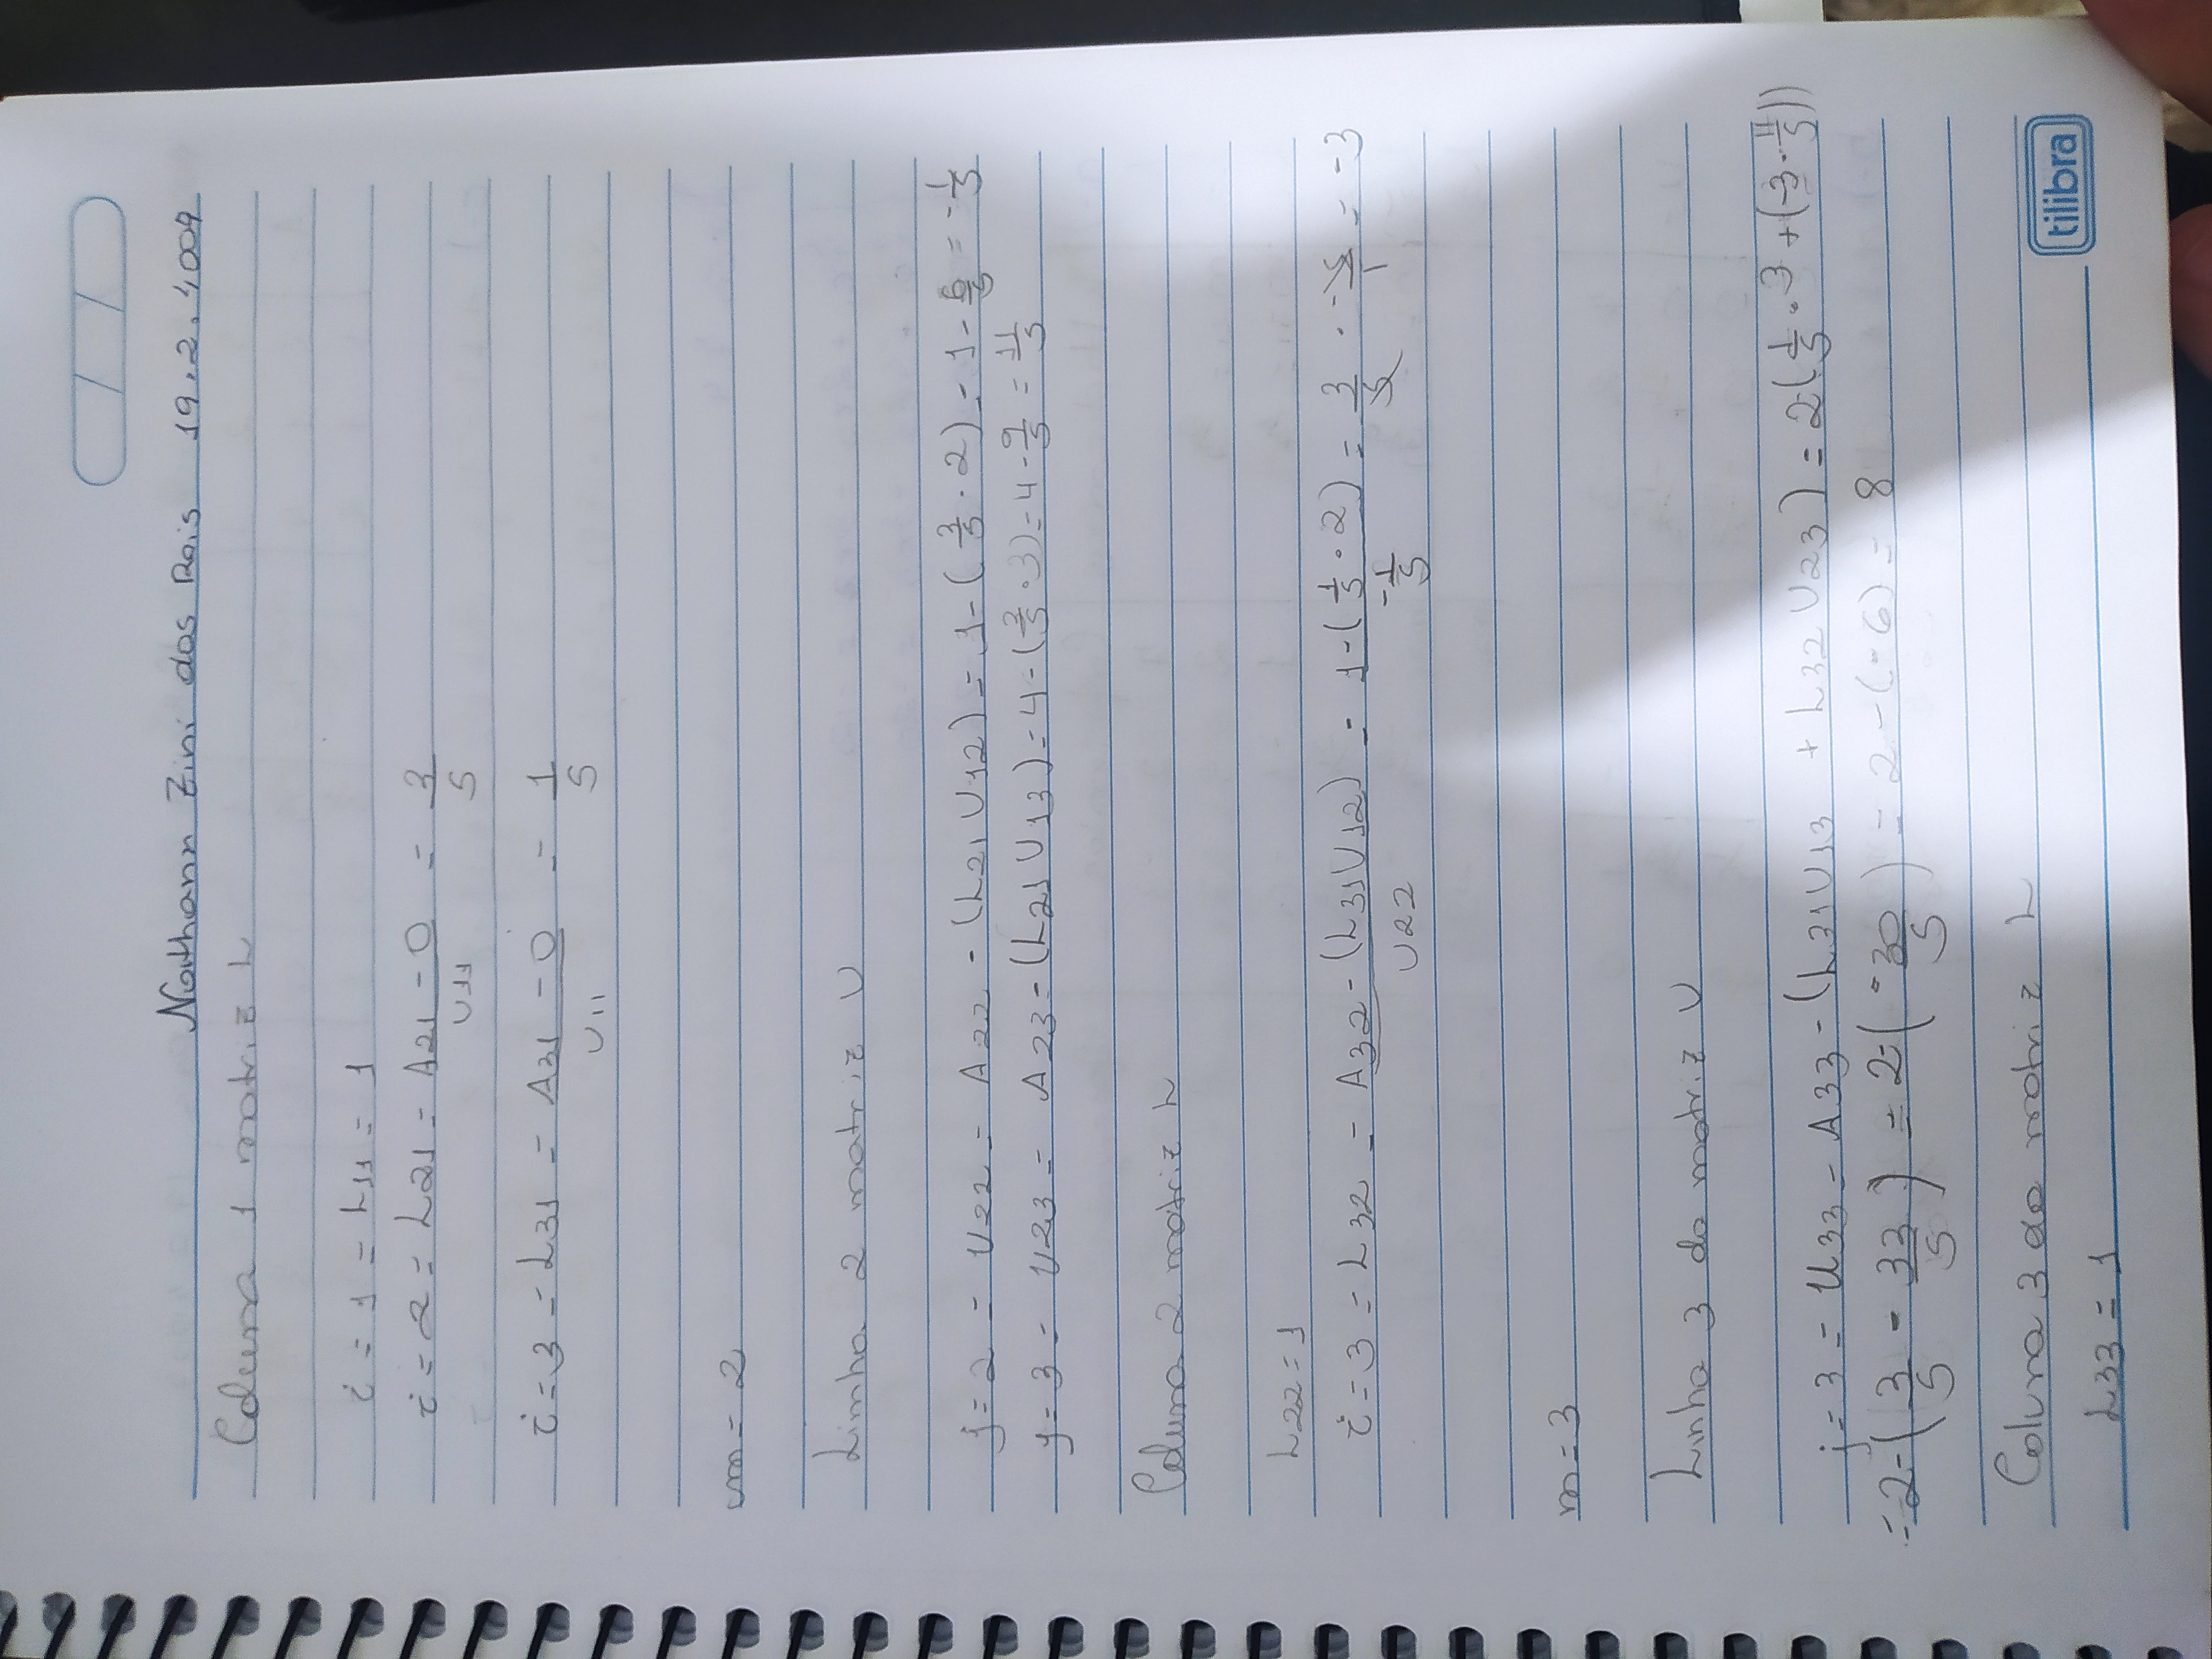 Nathann Zini dos Reis 19.2.4007
Coluna 1 matriz L
i = 1 = L11 = 1
i = 2 = L21 = A21 - 0 / U11 = 3/5
i = 3 = L31 = A31 - 0 / U11 = 1/5
m = 2
Linha 2 matriz U
j = 2 = U22 = A22 - (L21 U12) = 1 - (3/5 · 2) = 1 - 6/5 = -1/5
j = 3 = U23 = A23 - (L21 U13) = 4 - (3/5 · 3) = 4 - 9/5 = 11/5
Coluna 2 matriz L
L22 = 1
i = 3 = L32 = A32 - (L31 U12) / U22 = 1 - (1/5 · 2) / -1/5 = 3/5 · -5/1 = -3
m = 3
Linha 3 da matriz U
j = 3 = U33 = A33 - (L31 U13 + L32 U23) = 2-(1/5 · 3 + (-3 · 11/5))
= 2-(3/5 - 33/5) = 2-(-30/5) = 2 - (-6) = 8
Coluna 3 da matriz L
L33 = 1
tilibra